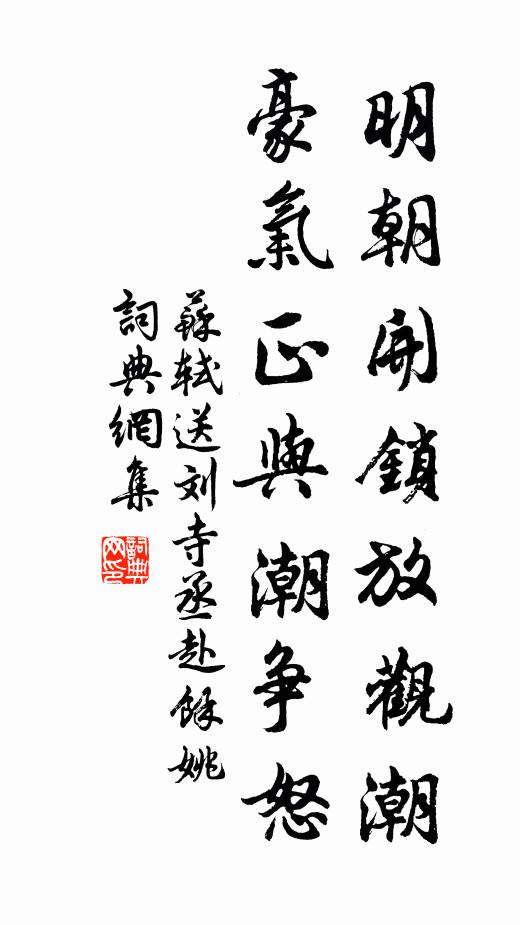 明朝開鎖放觀潮
豪氣正與潮争怒
蘇軾送刘寺丞赴餘姚
詞典網集
詞典網印